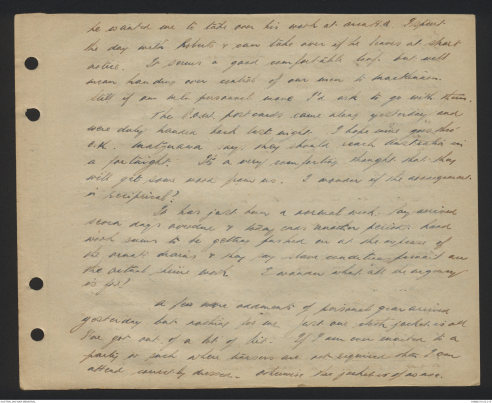 he wanted me to take over his work at area H.Q. I spent
the day with Roberts & can take over if he leaves at short
notice. It seems a good comfortable job but will
mean handing over control of our men to
Still if our men personnel move I'd ask to go with them.
The P.O.W. postcards came along yesterday and
were duly handed back last night. I hope mine goes thro'
O.K. say they should reach Australia in
a fortnight. It's a very comforting thought that they
will get some word from us. I wonder if the arrangement
is reciprocal?
It has just been a normal week. Pay arrived
seven days overdue & today ends another period. Road
work seems to be getting pushed on at the expense of
the drains & they say conditions prevail on
the actual line work. I wonder what all the urgency
is for?
A few more oddments of personal gear arrived
yesterday but nothing for me. Just one jacket is all
I've got out of a lot of kit. If I am ever invited to a
party or such where trousers are not required then I can
attend correctly dressed. Otherwise the jacket is of no use.